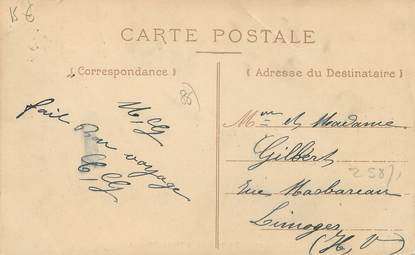 15 €
CARTE POSTALE
Correspondance
Adresse du Destinataire
85
fait Bon voyage
Mr et Madame
Gilbert
Rue Masbareau
Limoges
(H. V.)